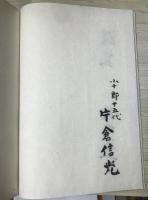 小十郎十五代
片倉信光